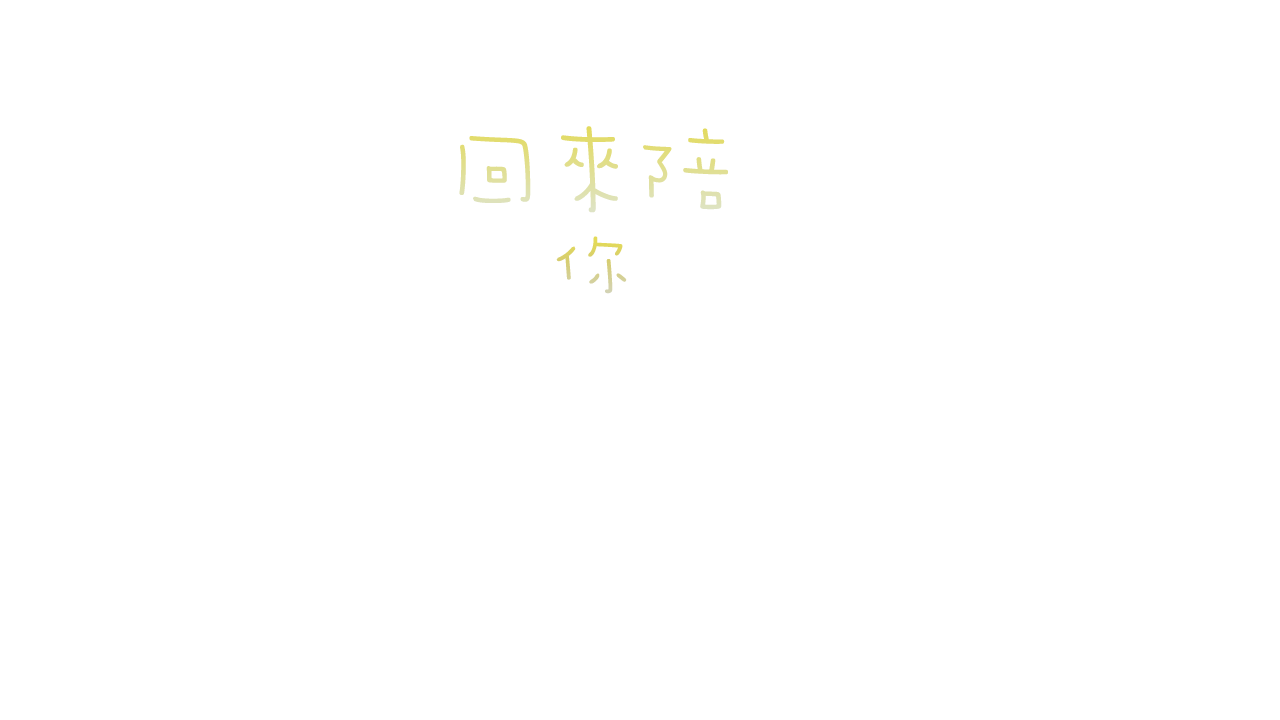 回來陪
你